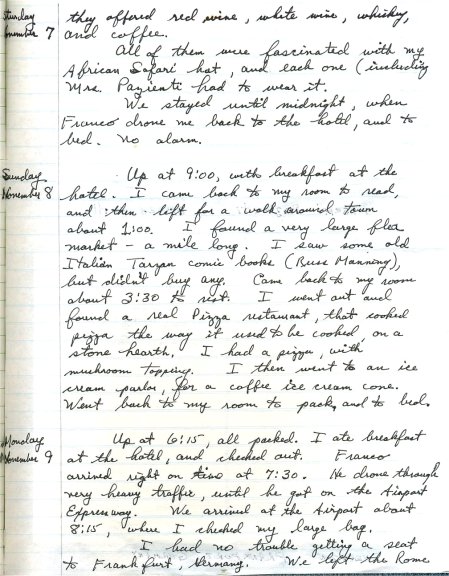 Saturday
November 7
they offered red wine, white wine, whiskey,
and coffee.
All of them were fascinated with my
African Safari hat, and each one (including
Mrs. Pazienti had to wear it.
We stayed until midnight, when
Franco drove me back to the hotel, and to
bed. No alarm.
Sunday
November 8
Up at 9:00, with breakfast at the
hotel. I came back to my room to read,
and then left for a walk around town
about 1:00. I found a very large flea
market - a mile long. I saw some old
Italian Tarzan comic books (Russ Manning),
but didn't buy any. Came back to my room
about 3:30 to rest. I went out and
found a real Pizza restaurant, that cooked
pizza the way it used to be cooked, on a
stone hearth. I had a pizza, with
mushroom topping. I then went to an ice
cream parlor, for a coffee ice cream cone.
Went back to my room to pack, and to bed.
Monday
November 9
Up at 6:15, all packed. I ate breakfast
at the hotel, and checked out. Franco
arrived right on time at 7:30. He drove through
very heavy traffic, until he got on the Airport
Expressway. We arrived at the Airport about
8:15, where I checked my large bag.
I had no trouble getting a seat
to Frankfurt, Germany. We left the Rome